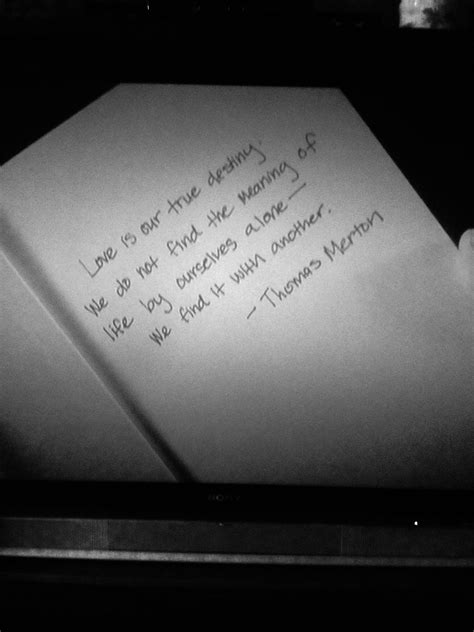 Love is our true destiny.
We do not find the meaning of
life by ourselves alone—
We find it with another.
— Thomas Merton
SONY